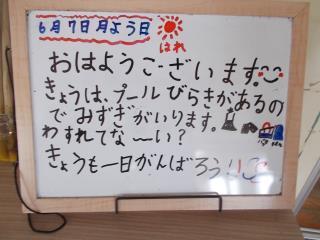 6月7日月よう日
はれ
おはようございます。
きょうは、プールびらきがあるの
でみずぎがいります。
わすれてな〜い？
きょうも一日がんばろう!!